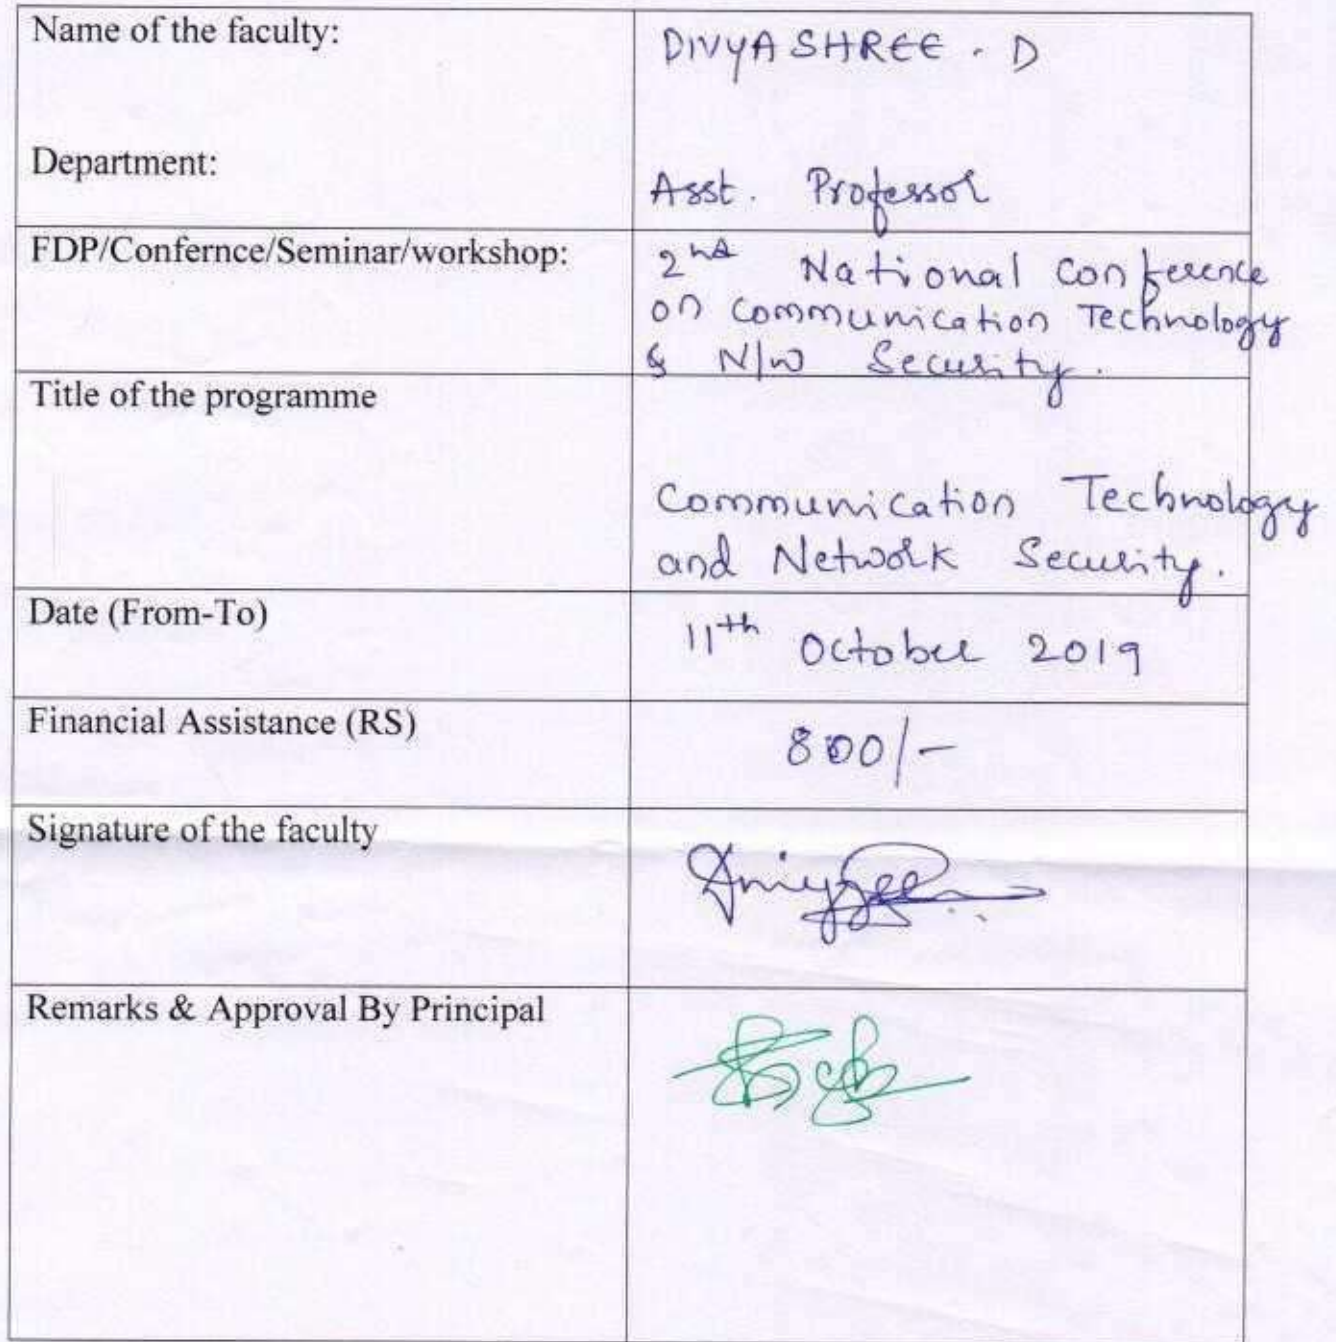 Name of the faculty:
DIVYASHREE . D
Department:
Asst. Professor
FDP/Confernce/Seminar/workshop:
2nd National Conference
on Communication Technology
& N/w Security.
Title of the programme
Communication Technology
and Network Security.
Date (From-To)
11th October 2019
Financial Assistance (RS)
800/-
Signature of the faculty
Remarks & Approval By Principal